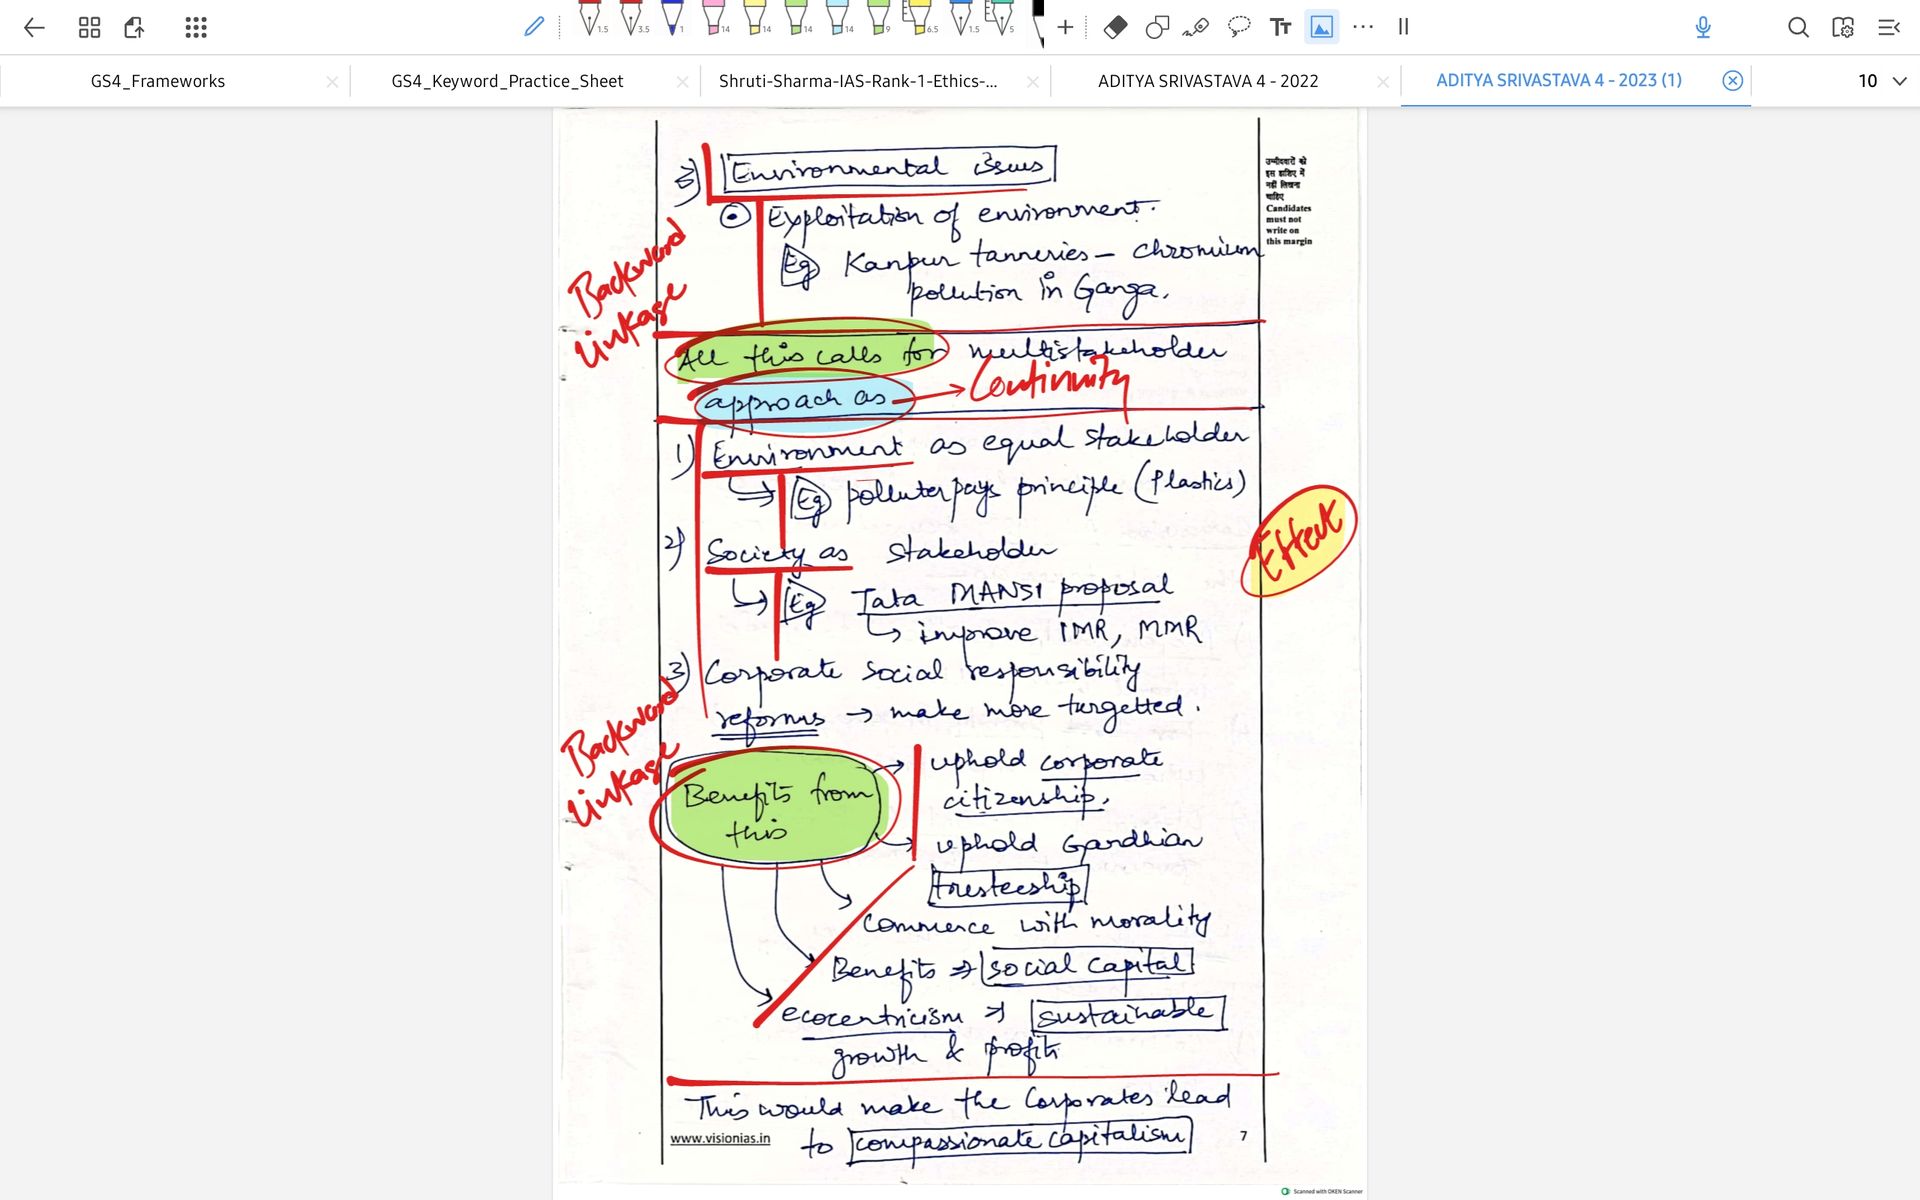 1.5
3.5
1
14
14
14
14
9
6.5
1.5
5
Tt
GS4_Frameworks
GS4_Keyword_Practice_Sheet
Shruti-Sharma-IAS-Rank-1-Ethics-...
ADITYA SRIVASTAVA 4 - 2022
ADITYA SRIVASTAVA 4 - 2023 (1)
10
उम्मीदवारों को
इस हाशिए में
नहीं लिखना
चाहिए
Candidates
must not
write on
this margin
3) Environmental issues
Exploitation of environment.
Eg Kanpur tanneries - chromium
pollution in Ganga.
Backward
linkage
All this calls for multistakeholder
approach as → Continuity
1) Environment as equal stakeholder
Eg polluter pays principle (Plastics)
Effect
2) Society as stakeholder
Eg Tata MANSI proposal
improve IMR, MMR
3) Corporate social responsibility
reforms → make more targetted.
Backward
linkage
Benefits from
this
uphold corporate
citizenship.
uphold Gandhian
trusteeship
Commerce with morality
Benefits → social capital
ecocentricism → sustainable
growth & profit
This would make the Corporates lead
to compassionate capitalism
www.visionias.in
7
Scanned with OKEN Scanner